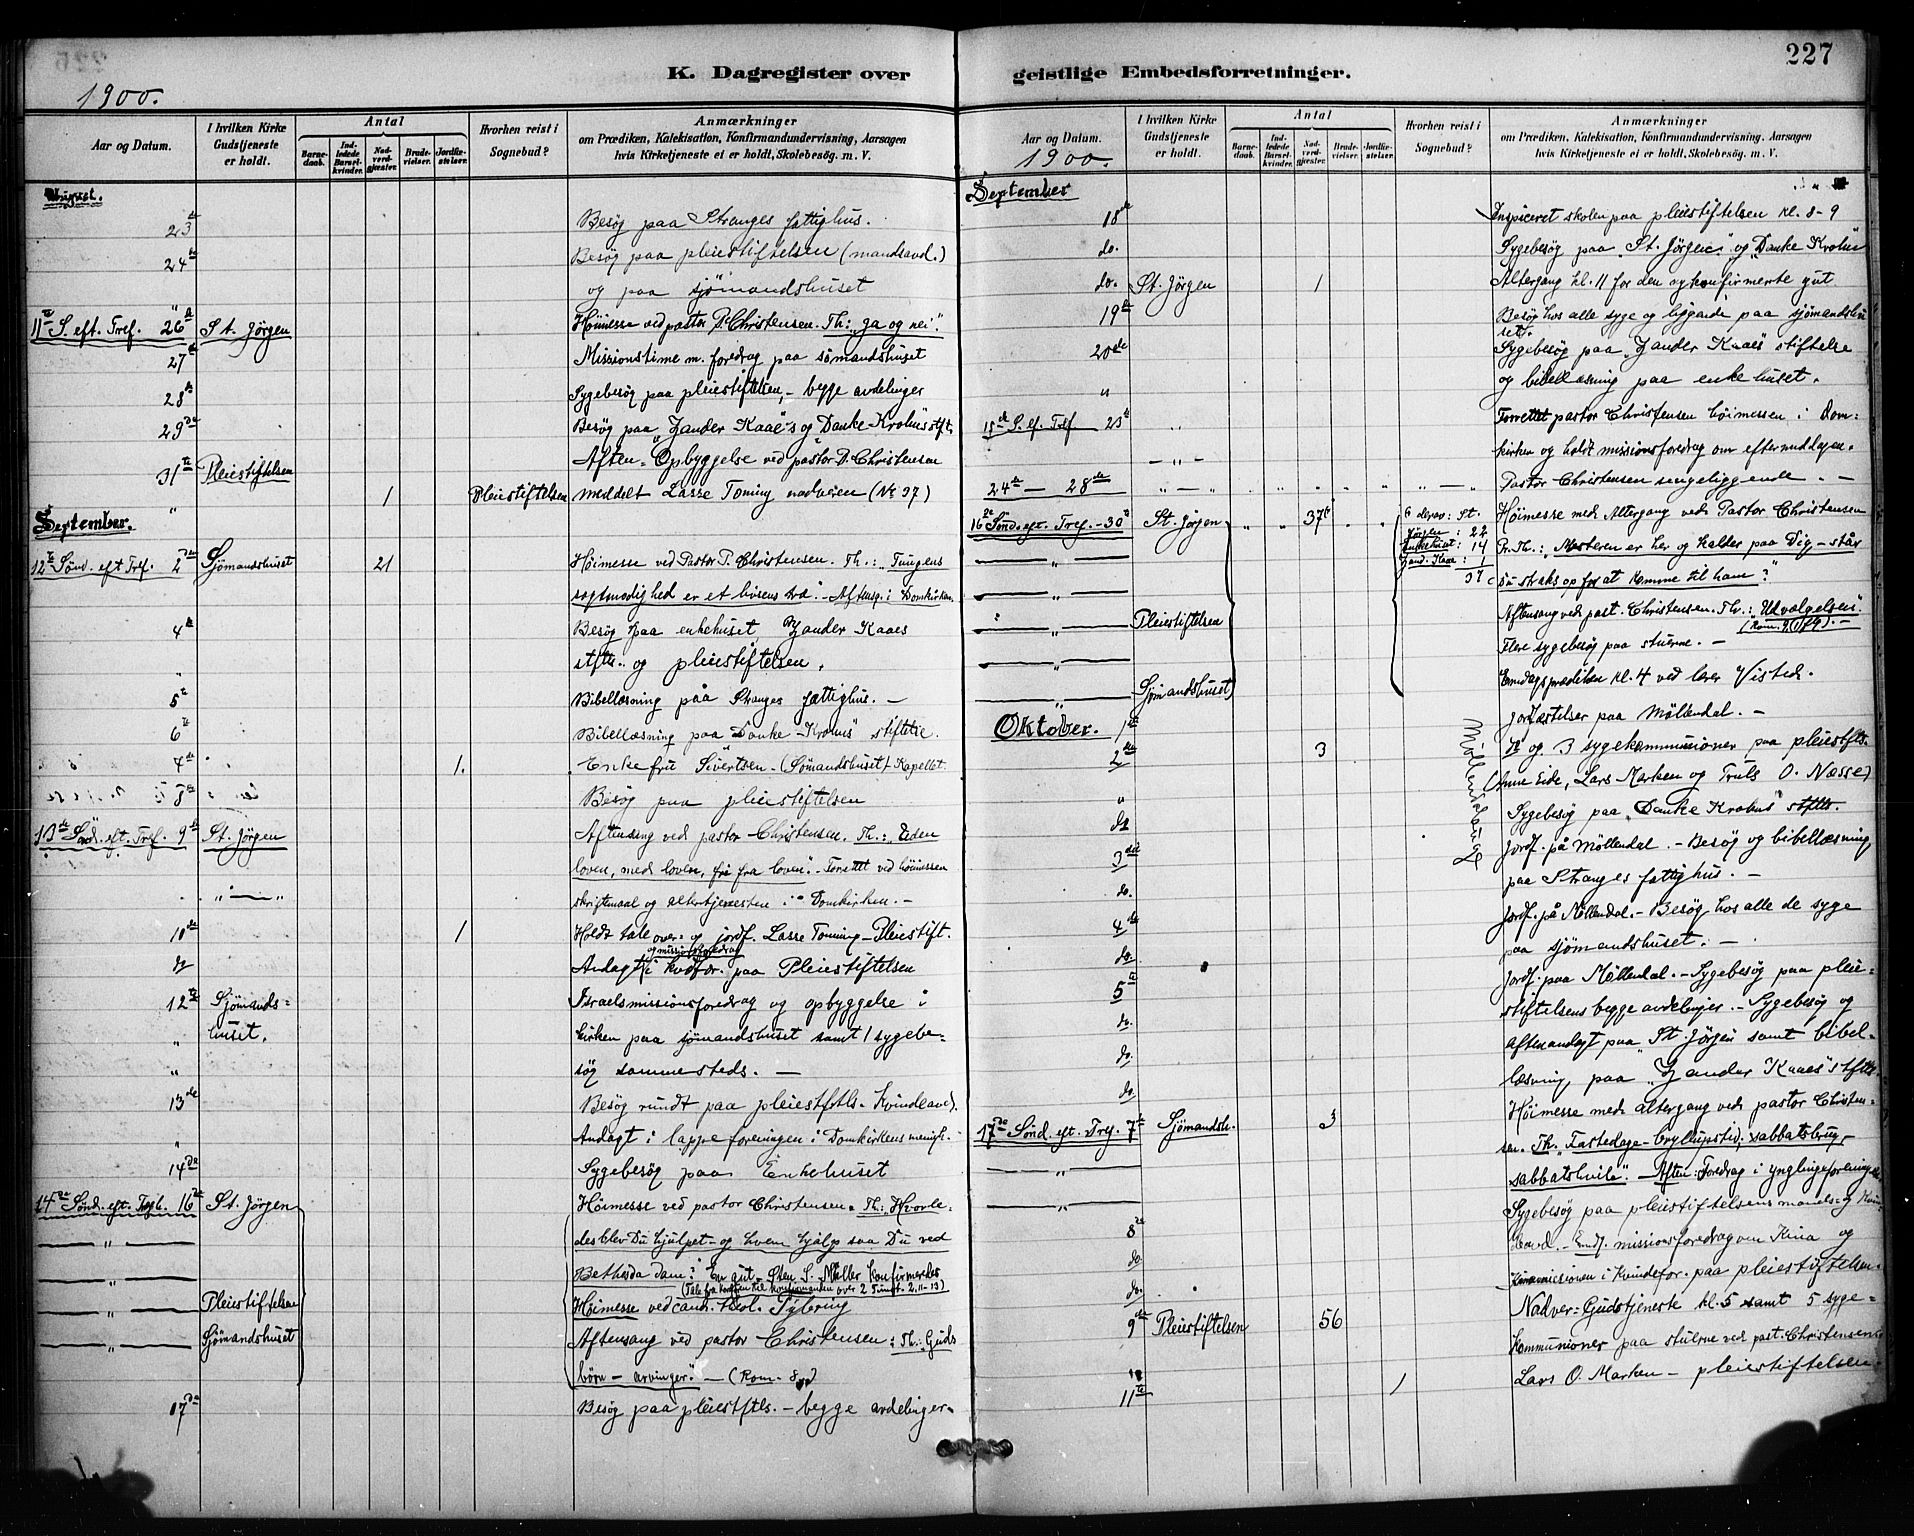 K. Dagregister over
1900.
Aar og Datum.
I hvilken Kirke Gudstjeneste er holdt.
Antal
Barnedaab.
Indledede Barselkvinder.
Nadverdgjester.
Brudevielser.
Jordfæstelser.
Hvorhen reist i Sognebud?
Anmærkninger
om Prædiken, Katekisation, Konfirmandundervisning, Aarsagen
hvis Kirketjeneste ei er holdt, Skolebesög. m. V.
August.
23 Besøg paa Stranges fattighus.
24 Besøg paa pleiestiftelsen (mandsavd.)
" og paa sjömandshuset
11te S. eft. Tref. 26 St. Jørgen Høimesse ved pastor P. Christensen. Th: "Ja og nei".
27 Missionstime m. foredrag paa sømandshuset
28 Sygebesøg paa pleiestiftelsen, - begge avdelinger
29de Besøg paa "Zander Kaae's og Danke-Krohns stft.
31te Pleiestiftelsen Aften-Opbyggelse ved pastor P. Christensen
" 1 Pleiestiftelsen meddelt Lasse Toning nadveren (No 97)
September.
12te Sönd. eft Tref. 2den Sjömandshuset 21 Høimesse ved Pastor P. Christensen. Th.: "Tungens
sagtmodighed er et livsens træ". - Aftensg. i Domkirken.
4de Besøg paa enkehuset, Zander Kaaes
" stft. og pleiestiftelsen.
5te Bibellæsning paa Stranges fattighus. -
6te Bibellæsning paa Danke-Krohns stiftelse.
4de 1. Enkefru Sivertsen - (Sømandshuset) Kapellet.
8de Besøg paa pleiestiftelsen
13de Sönd. eft. Tref. 9de St. Jørgen Aftensang ved pastor Christensen. Th.: "Uden
loven, med loven, fri fra loven". - Forrettet ved höimessen
" — " skriftemaal og altertjenesten i Domkirken. -
10de 1 Holdt tale over- og jordf. Lasse Tonning - Pleiestift.
do Andagt og missionsforedrag i kvdfor. paa Pleiestiftelsen
12te Sjömands= Israelsmissionsforedrag og opbyggelse i
" huset. kirken paa sjømandshuset samt 1 sygebe-
" søg sammesteds. —
13de Besøg rundt paa pleiestftls. Kvindeavd.
" Andagt i lappeforeningen i Domkirkens menigh.
14de Sygebesøg paa Enkehuset
14de Sønd. eft. Tref. 16de St. Jørgen Høimesse ved pastor Christensen. Th: "Hvorle-
— " — des blev Du hjulpet - og hvem hjalp saa Du ved
— " — Bethesda dam? En gut - Sten S. Møller konfirmeredes
(Tale fra kordøren til konfirmanden over 2 Timot. 2, 11-13)
— " — Pleiestiftelsen Høimesse ved cand. theol.
— " — Sjömandshuset Aftensang ved pastor Christensen: Th: "Guds
børn - arvinger". - (Rom. 8)
17de Besøg paa pleiestftls. - begge avdelinger.
geistlige Embedsforretninger.
227
Aar og Datum.
1900.
I hvilken Kirke Gudstjeneste er holdt.
Antal
Barnedaab.
Indledede Barselkvinder.
Nadverdgjester.
Brudevielser.
Jordfæstelser.
Hvorhen reist i Sognebud?
Anmærkninger
om Prædiken, Katekisation, Konfirmandundervisning, Aarsagen
hvis Kirketjeneste ei er holdt, Skolebesög. m. V.
September
18de Inspiceret skolen paa pleiestiftelsen kl. 8-9
do. Sygebesøg paa "St. Jørgen" og "Danke Krohn"
do. St. Jørgen 1 Altergang kl. 11 for den nykonfirmerte gut
19de Besøg hos alle syge og liggende paa sjömandshu
set.
20de Sygebesøg paa "Zander Kaaes" stiftelse
" og bibellæsning paa enkehuset.
15de S. ef. Tref 23de " Forrettet pastor Christensen höimessen i Dom-
— " — kirken og holdt missionsforedrag om eftermiddagen.
24de — 28de " — " " " " " " " — " Pastor Christensen sengeliggende. —
16de Sönd. eft. Tref. - 30te St. Jørgen " " 37 " " 6 derav: St. Jørgen: 22 Høimesse med Altergang ved Pastor Christensen
— " — Enkehuset: 14 Pr. Th.: "Mesteren er her og kalder paa Dig - står
— " — Zand. Kaae: 1 37 du straks op for at komme til ham?"
— " — Pleiestiftelsen Aftensang ved past. Christensen. Th.: "Udvælgelsen".
— " — Flere sygebesøg paa stuerne. -
— " — Sjømandshuset Emdagsprædiken kl. 4 ved lærer Visted.
Oktober. 1ste Jordfæstelser paa Møllendal. -
2den 3 Nt og 3 sygekommunioner paa pleiestfts.
(Anne Eide, Lars Marken og Truls O. Næsse)
" Sygebesøg paa "Danke Krohns" stftls.
do Jordf. på Møllendal. - Besøg og bibellæsning
3die paa Stranges fattighus. -
do. Jordf. på Møllendal. - Besøg hos alle de syge
4de paa sjømandshuset. -
do. Jordf. paa Møllendal. - Sygebesøg paa pleie-
5te stiftelsens begge avdelinger. - Sygebesøg og
do. aftenandagt paa "St. Jørgen samt bibel-
do. læsning, paa "Zander Kaaes" stftls.
17de Sønd. eft. Tref. 7de Sjømandsh. 3 Høimesse med altergang ved pastor Christen-
sen. Th. "Fastedage - bryllupstid, sabbatsbrug -
— " — sabbatshvile". - Aften: Foredrag i ynglingeforeningen
— " — Sygebesøg paa pleiestiftelsens mands- og kvin-
8de deavd. - Emdf. missionsforedrag om Kina og
do. Kinamissionen i Kvindefor. paa pleiestiftelsen.
9de Pleiestiftelsen 56 Nadver-Gudstjeneste kl. 5 samt 5 syge-
kommunioner paa stuerne ved past. Christensen.
11te 1 Lars O. Marken - pleiestiftelsen.